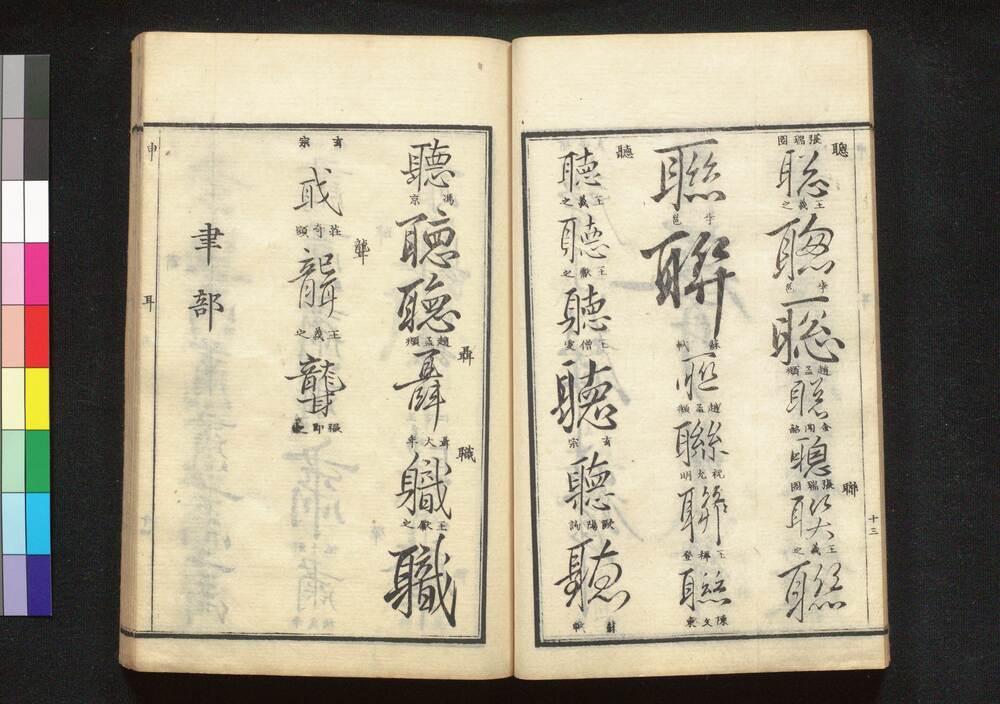 十三
聰
張瑞圖
聡
王羲之
聰
李邕
聡
趙孟頫
聡
聰
張瑞圖
聯
聯
王羲之
聯
聯
李邕
聯
蘇軾
聯
趙孟頫
聯
祝允明
聯
王穉登
聯
陳文東
聽
聽
王羲之
聽
王獻之
聽
王僧虔
聽
玄宗
聽
歐陽詢
聽
蘇軾
聽
馮京
聽
聽
趙孟頫
聶
聶
聶大年
職
職
王獻之
職
玄宗
莊奇顯
聾
聾
王羲之
聾
張即之
聿部
申
耳